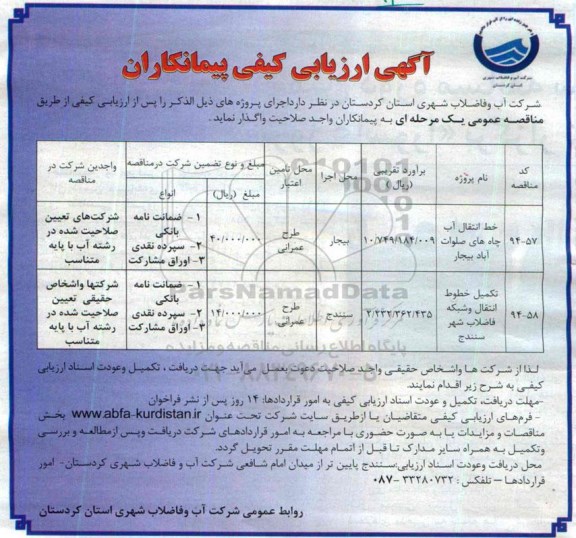 شرکت آب و فاضلاب شهری
استان کردستان
آگهی ارزیابی کیفی پیمانکاران
شرکت آب وفاضلاب شهری استان کردستان در نظر دارداجرای پروژه های ذیل الذکر را پس از ارزیابی کیفی از طریق
مناقصه عمومی یک مرحله ای به پیمانکاران واجد صلاحیت واگذار نماید.
کد مناقصه
نام پروژه
برآورد تقریبی (ریال)
محل اجرا
محل تامین اعتبار
مبلغ و نوع تضمین شرکت درمناقصه
مبلغ (ریال)
انواع
واجدین شرکت در مناقصه
۹۴-۵۷
خط انتقال آب
چاه های صلوات
آباد بیجار
۱۰/۷۴۹/۱۸۴/۰۰۹
بیجار
طرح
عمرانی
۴۰/۰۰۰/۰۰۰
۱- ضمانت نامه
بانکی
۲- سپرده نقدی
۳- اوراق مشارکت
شرکت‌های تعیین
صلاحیت شده در
رشته آب با پایه
متناسب
۹۴-۵۸
تکمیل خطوط
انتقال وشبکه
فاضلاب شهر
سنندج
۲/۲۳۲/۳۶۲/۴۳۵
سنندج
طرح
عمرانی
۱۴/۰۰۰/۰۰۰
۱- ضمانت نامه
بانکی
۲- سپرده نقدی
۳- اوراق مشارکت
شرکتها واشخاص
حقیقی تعیین
صلاحیت شده در
رشته آب با پایه
متناسب
ParsNamadData
پایگاه اطلاع رسانی مناقصه و مزایده
لـذا از شرکت هـا واشخاص حقیقی واجـد صلاحیت دعوت بعمـل می آید جهت دریافت ، تکمیـل وعودت اسـناد ارزیابی
کیفی به شرح زیر اقدام نمایند.
-مهلت دریافت، تکمیل و عودت اسناد ارزیابی کیفی به امور قراردادها: ۱۴ روز پس از نشر فراخوان
- فرم‌های ارزیابی کیفی متقاضیان یا ازطریق سایت شرکت تحت عنوان www.abfa-kurdistan.ir بخش
مناقصات و مزایدات یا به صورت حضوری با مراجعه به امور قراردادهای شرکت دریافت وپس ازمطالعه و بررسی
وتکمیل به همراه سایر مدارک تا قبل از اتمام مهلت مقرر تحویل گردد.
محل دریافت وعودت اسناد ارزیابی:سنندج پایین تر از میدان امام شافعی شرکت آب و فاضلاب شهری کردستان- امور
قراردادها – تلفکس : ۳۳۲۸۰۷۳۲ -۰۸۷
روابط عمومی شرکت آب وفاضلاب شهری استان کردستان